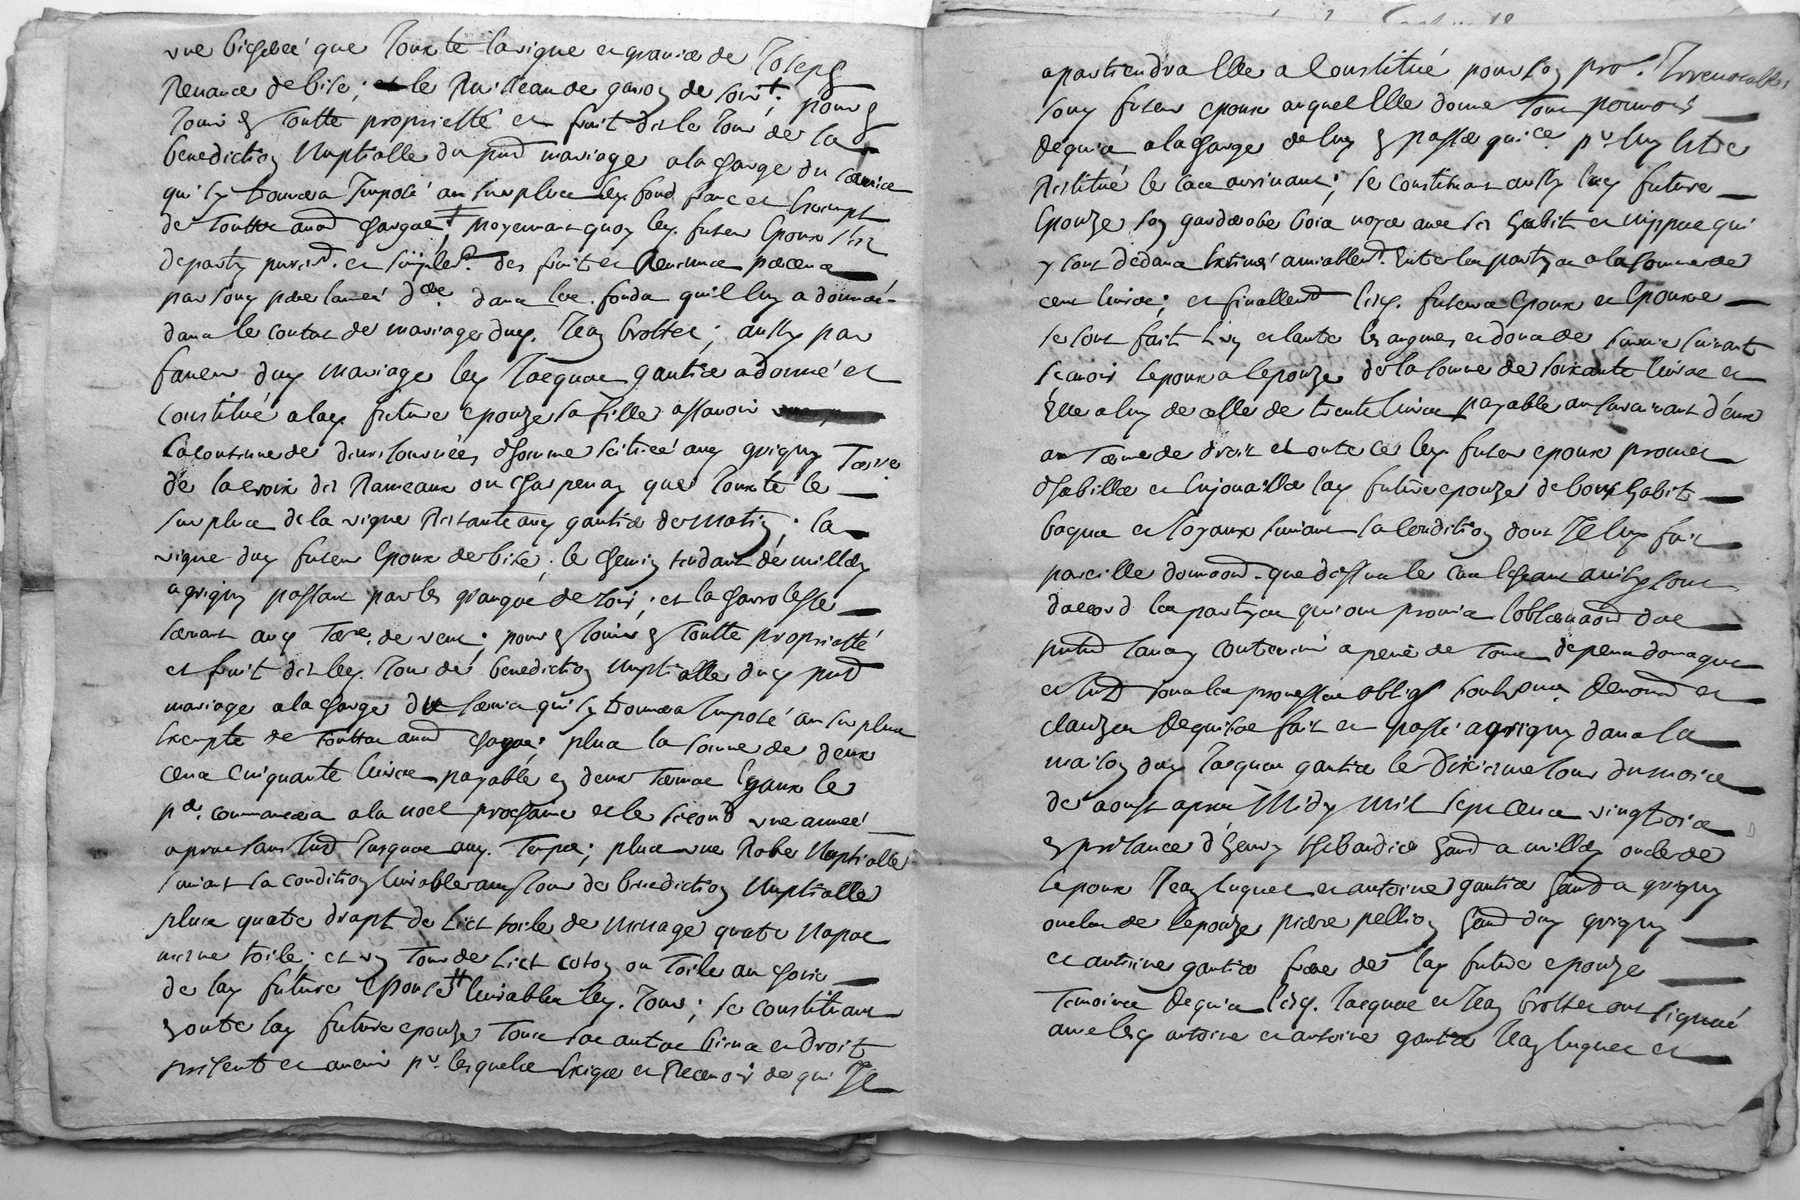 vne bicheré que Jouxte la vigne et grauier de Joseph
Renance de bise; le Ruisseau de garon de soir; pour
Jouir en toutte proprietté et fruit dez le Jour de la
benediction Nuptialle du pnd mariage a la charge du cervice
qui sy trouuera Imposé au surplus ley fond franc et Exempt
de touttes aud charges moyennant quoy ley. futur Epoux s'est
departy puremt. et simplemt. des fruit et Reuenus perceus
par souy pere dans les fonds qu'il luy a donné
dans le contrat de mariage duy. Jean brottet; aussy par
faueur duy mariage ley Jacques gautier a donné et
constitué a lay future epouze sa fille assauoir
La contenue de deux Journées d'homme scituéé auy grigny Terre
de la croix des Rameaux ou charpenay que Jouxte le
surplus de la vigne Restante auy gautier de matin; la
vigne duy futur Epoux de bise; le chemin tendant de millery
a grigny passant par les granges de soir; et la
auy Terre. de vent; pour en Jouir en Toutte proprietté
et fruit dez ley. Jour de benediction Nuptialle duy pnd
mariage a la charge du seruis qui sy trouuera Imposé au surplus
Exempte de touttes aud charges; plus la somme de deux
cens cinquante liures payable en deux Termes Egaux le
pr. commancera a la noel prochaine et le second vne année
apres sans Jusques auy. Temps; plus vne Robe Nuptialle
suiuant sa condition liurable auy Jour de benediction Nuptialle
plus quatre drapt de Lict toile de menage quatre Napes
mesme toile; et vn Tour de Lict coton ou Toile au choix
de lay future Epouse liurables ley. Jour; se constituant
en outre lay future epouze Tous ses autres biens et droit
present et auenir pr. lesquels Exiger et Receuoir de qui Il
apartiendra Elle a Constitué pour son pror. Irreuocable
souy futur epoux auquel Elle donne Tous pouuoir
Requis a la charge de luy en passer quice. pr luy Estre
Restitué le cas arriuant; se constituant aussy lay future
Epouze son garderobe bois noyer auec ses habit et nippes qui
y sont dedans Estimé amiablemt. Entre les partyes a la somme de
cent liures; et finallemt lesy. futurs Epoux et Epouse
se sont fait L'vn et lautre en augmen et dona de suruie suiuant
scauoir lepoux a lepouze de la somme de soixante liures et
Elle a luy de celle de trente liures payable au suruiuant d'eux
au Terme de droit et outre ce ley. futur epoux promet
d'habiller et Enjouailler lay future epouze de bons habit
bagues et Joyaux suiuant sa condition dont Il luy fait
pareille donnaond. que dessus le cas Escheant ainsy sont
daccord les partyes qui ont promis lobseruaond des
pntes sans y contreuenir a peine de Tous depens domages
et Int sous les promesses oblig soubmis Renond et
clauzes Requises fait et passé a grigny dans la
maison duy Jacques gautier le Dixieme Jour du mois
de aoust apres Midy Mil sept cens vingt six
en presence d'henry thibaudier hand a millery oncle de
lepoux Jean luquet et antoine gautier hand a grigny
oncles de lepouze pierre pellion hand duy grigny
et antoine gautier frere de lay future epouze
Temoins Requis lesy. Jacques et Jean brottet ont signéé
auec lesy antoine et antoine gautier Jean luquet et